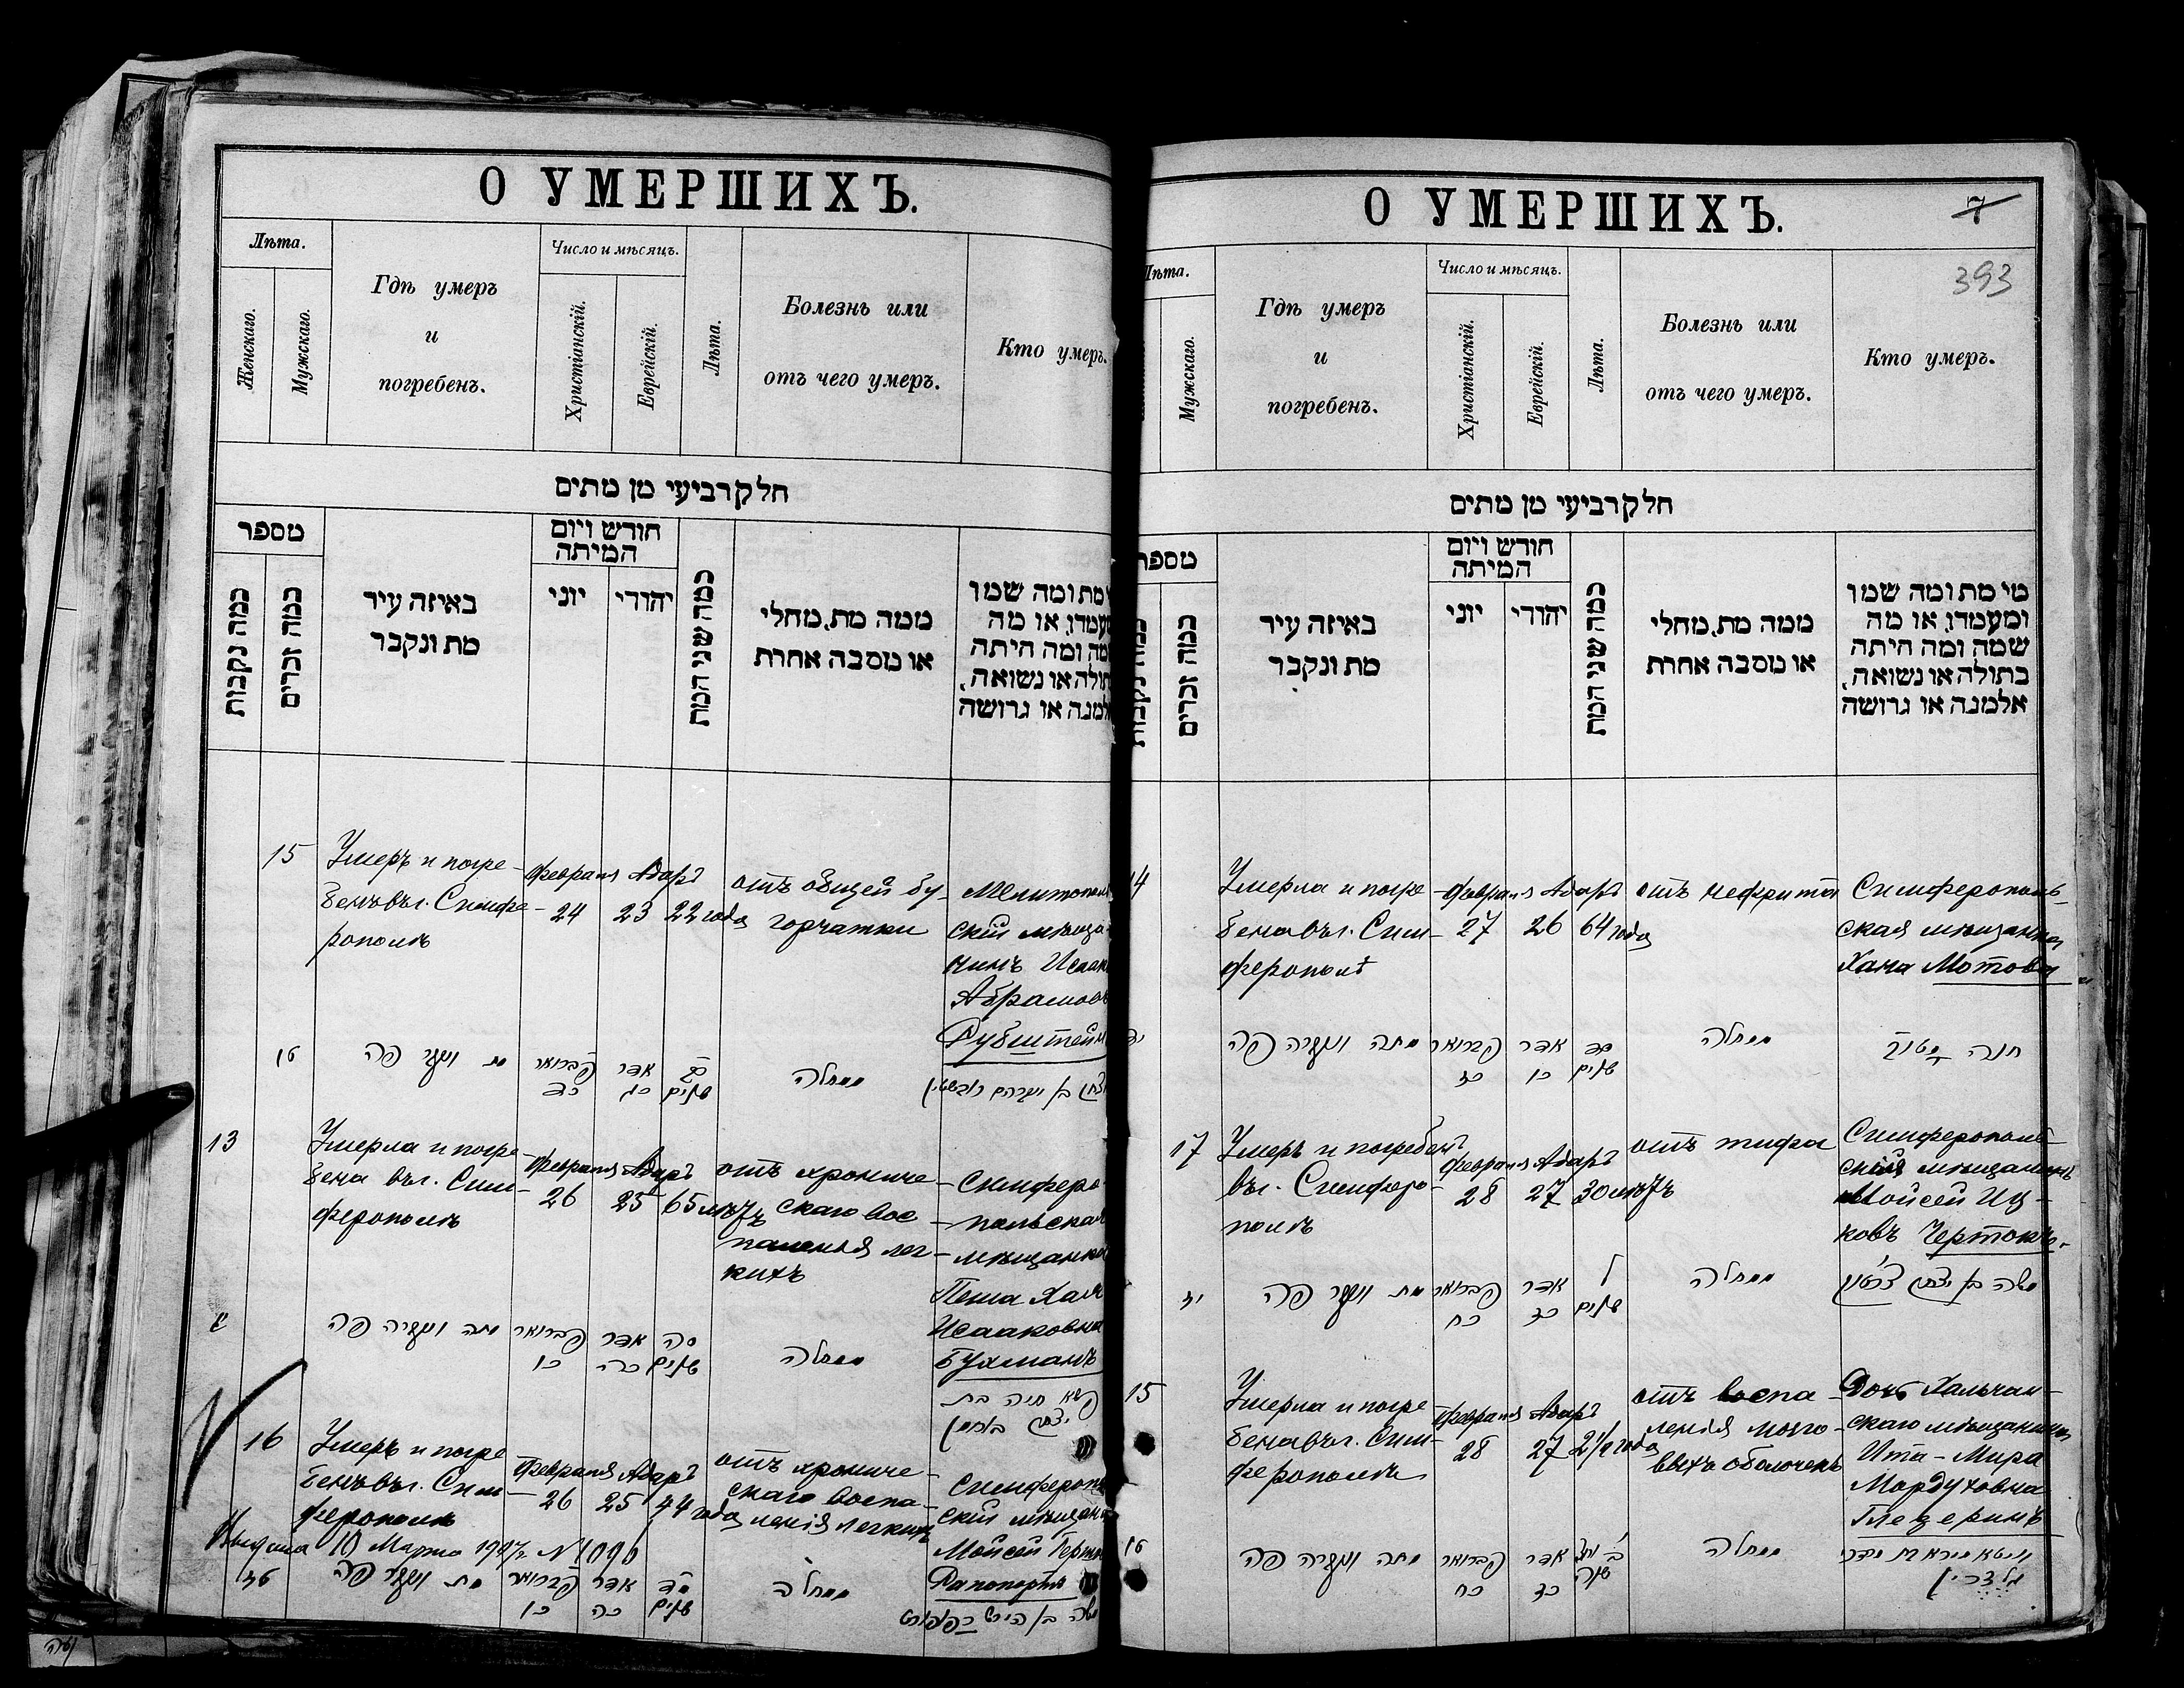 О УМЕРШИХЪ.
Лѣта.
Женскаго.
Мужскаго.
Гдѣ умеръ
и
погребенъ.
Число и мѣсяцъ.
Христіанскій.
Еврейскій.
Лѣта.
Болезнь или
отъ чего умеръ.
Кто умеръ.
חלק רביעי מן מתים
מספר
כמה נקבות
כמה זכרים
באיזה עיר
מת ונקבר
חודש ויום
המיתה
יוני
יהודי
כמה שני המת
ממה מת, מחלי
או מסבה אחרת
מת ומה שמו
או מה
ומה היתה
או נשואה,
או גרושה
15
Умеръ и погре-
бенъ въ г. Симфе-
рополѣ
Февраля
24
Адаръ
23
22 года
отъ общей бу-
горчатки
Мелитополь
скій мѣща-
нинъ Исаакъ
Абрамовъ
Рубштейнъ
טו
מת ונקבר פה
פברואר
כד
אדר
כג
כב
שנים
ממחלה
יצחק בן אברהם רובשטיין
13
Умерла и погре-
бена въ г. Сим-
ферополѣ
Февраля
26
Адаръ
25
65 лѣтъ
отъ хрониче-
скаго вос-
паленія лег-
кихъ
Симферо-
польская
мѣщанка
Пеша Хая
Исааковна
Бухманъ
מתה ונקברה פה
פברואר
כו
אדר
כה
סה
שנים
ממחלה
פשא חיה בת
יצחק בוכמן
16
Умеръ и погре
бенъ въ г. Сим-
ферополѣ
Февраля
26
Адаръ
25
44 года
отъ хрониче-
скаго воспа-
ленія легкихъ
Симферопо
скій мѣщан
Мойсей Герш
Рапопортъ
10 Марта 1907 г. № 1090
טז
מת ונקבר פה
פברואר
כו
אדר
כה
מד
שנים
ממחלה
משה בן הירש רפפורט
О УМЕРШИХЪ.
7
393
Лѣта.
Мужскаго.
Гдѣ умеръ
и
погребенъ.
Число и мѣсяцъ.
Христіанскій.
Еврейскій.
Лѣта.
Болезнь или
отъ чего умеръ.
Кто умеръ.
חלק רביעי מן מתים
מספר
כמה זכרים
באיזה עיר
מת ונקבר
חודש ויום
המיתה
יוני
יהודי
כמה שני המת
ממה מת, מחלי
או מסבה אחרת
מי מת ומה שמו
ומעמדו, או מה
שמה ומה היתה
בתולה או נשואה,
אלמנה או גרושה
14
Умерла и погре
бена въ г. Сим-
ферополѣ
Февраля
27
Адаръ
26
64 года
отъ нефрита
Симферополь-
ская мѣщанка
Хана Мотова
יד
מתה ונקברה פה
פברואר
כז
אדר
כו
סד
שנים
ממחלה
חנה מטוב
17
Умеръ и погребенъ
въ г. Симферо-
полѣ
Февраля
28
Адаръ
27
30 лѣтъ
отъ тифа
Симферополь-
скій мѣщанинъ
Мойсей Иц-
ковъ Чертокъ.
יז
מת ונקבר פה
פברואר
כח
אדר
כז
ל
שנים
ממחלה
משה בן יצחק צרטוק
15
Умерла и погре
бена въ г. Сим-
ферополѣ
Февраля
28
Адаръ
27
2 1/2 года
отъ воспа-
ленія мозго-
выхъ оболочекъ
Дочь
скаго мѣщанина
Ита-Мира
Мордуховна
Глезеринъ
טו
מתה ונקברה פה
פברואר
כח
אדר
כז
שנה
ממחלה
איטא מירא בת מרדכי